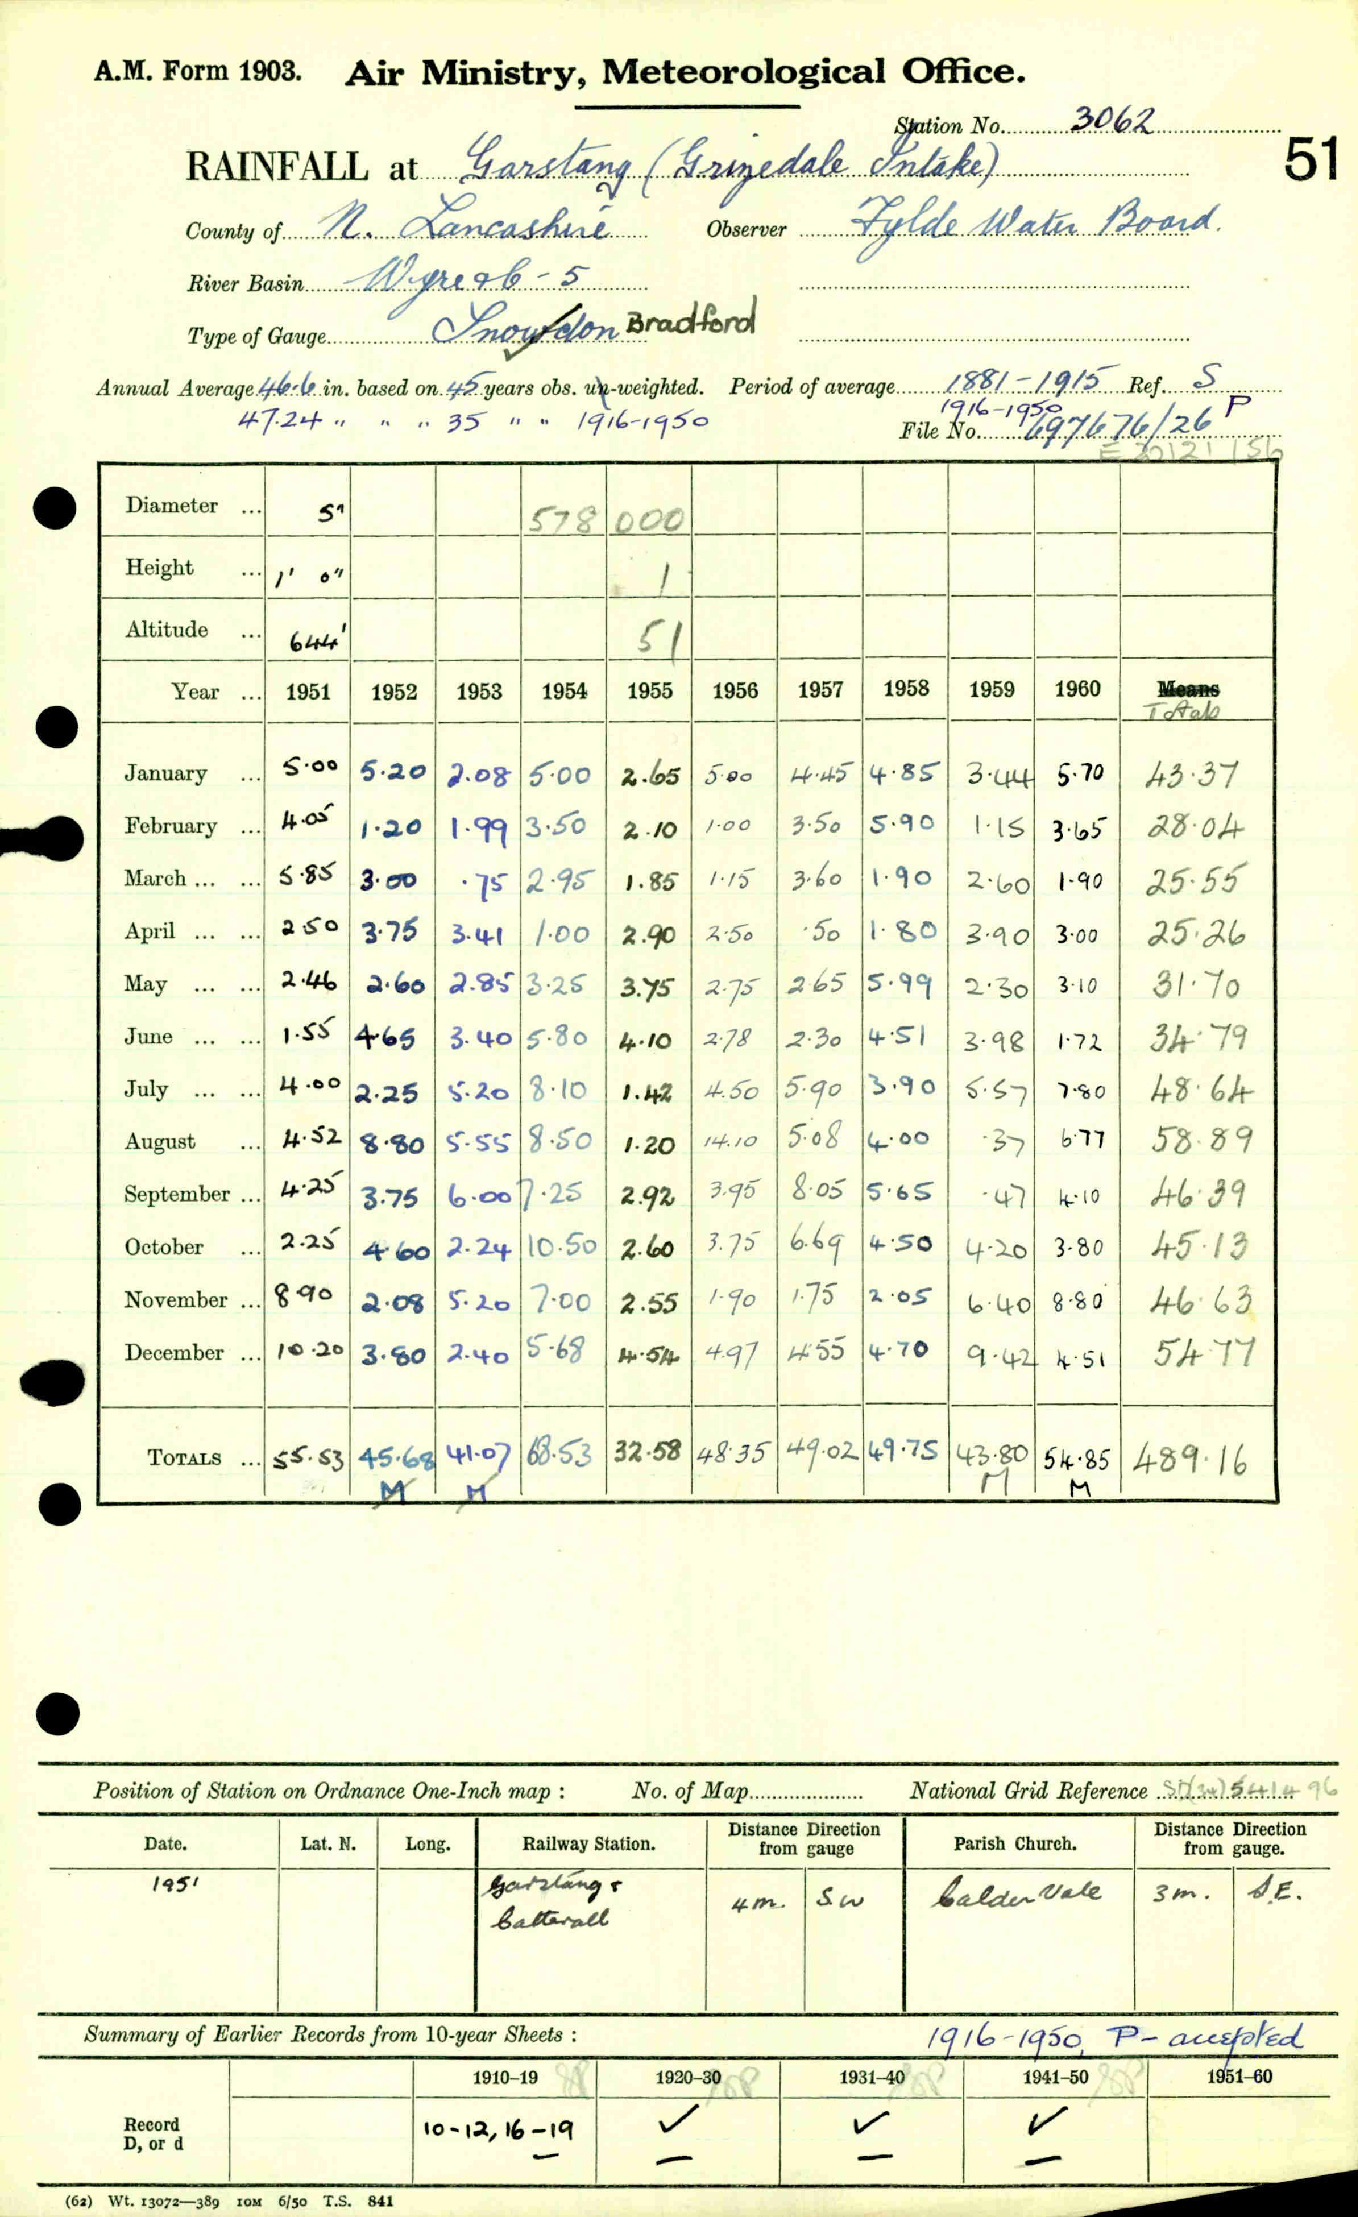 A.M. Form 1903. Air Ministry, Meteorological Office.
Station No. 3062
51
RAINFALL at Garstang (Grizedale Intake)
County of N. Lancashire Observer Fylde Water Board.
River Basin Wyre &c - 5
Type of Gauge Snowdon Bradford
Annual Average 46.6 in. based on 45 years obs. un-weighted. Period of average 1881-1915 Ref. S
47.24 " " " 35 " " 1916-1950 1916-1950 P
File No. 697676/26
E 20121/56
Diameter ... 5" 578 000
Height ... 1' 0" 1
Altitude ... 644' 51
Year ... 1951 1952 1953 1954 1955 1956 1957 1958 1959 1960 Means
Totals
January ... 5.00 5.20 2.08 5.00 2.65 5.00 4.45 4.85 3.44 5.70 43.37
February ... 4.05 1.20 1.99 3.50 2.10 1.00 3.50 5.90 1.15 3.65 28.04
March ... ... 5.85 3.00 .75 2.95 1.85 1.15 3.60 1.90 2.60 1.90 25.55
April ... ... 2.50 3.75 3.41 1.00 2.90 2.50 .50 1.80 3.90 3.00 25.26
May ... ... 2.46 2.60 2.85 3.25 3.75 2.75 2.65 5.99 2.30 3.10 31.70
June ... ... 1.55 4.65 3.40 5.80 4.10 2.78 2.30 4.51 3.98 1.72 34.79
July ... ... 4.00 2.25 5.20 8.10 1.42 4.50 5.90 3.90 5.57 7.80 48.64
August ... 4.52 8.80 5.55 8.50 1.20 14.10 5.08 4.00 .37 6.77 58.89
September ... 4.25 3.75 6.00 7.25 2.92 3.95 8.05 5.65 .47 4.10 46.39
October ... 2.25 4.60 2.24 10.50 2.60 3.75 6.69 4.50 4.20 3.80 45.13
November ... 8.90 2.08 5.20 7.00 2.55 1.90 1.75 2.05 6.40 8.80 46.63
December ... 10.20 3.80 2.40 5.68 4.54 4.97 4.55 4.70 9.42 4.51 54.77
TOTALS ... 55.53 45.68 41.07 68.53 32.58 48.35 49.02 49.75 43.80 54.85 489.16
M M M M
Position of Station on Ordnance One-Inch map : No. of Map National Grid Reference SD(34)541496
Date. Lat. N. Long. Railway Station. Distance Direction from gauge Parish Church. Distance Direction from gauge.
1951 Garstang & 4m. SW Calder Vale 3m. S.E.
Catterall
Summary of Earlier Records from 10-year Sheets : 1916-1950, P- accepted
1910–19 1920–30 1931–40 1941–50 1951–60
Record 10-12, 16-19 ✓ ✓ ✓
D, or d – – – –
(62) Wt. 13072—389 10M 6/50 T.S. 841